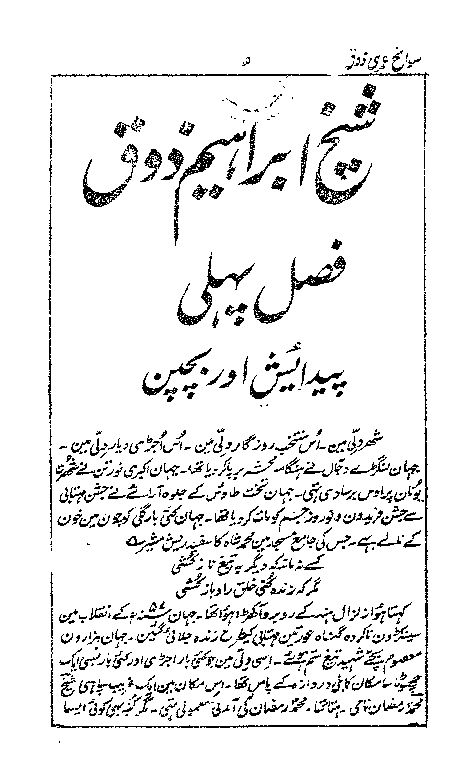 سوانح عمری ذوق
۵
شیخ ابراہیم ذوق
فصل پہلی
پیدایش اور بچپن
شہر دلّی مین ۔ اُس منتخب روزگار دلّی مین ۔ اُس اُجڑی دیار دلّی مین ۔
جہان لنگڑے دجّال نے ہنگامہ محشر برپا کر دیا تھا ۔ جہان اکبری نورتن نے شہرت
یونان پر اوس برسا دی تہی ۔ جہان تخت طاؤس کے جلوہ آرا نے جشن مہتابی
سے جشن فریدون و نوروز جم کو مات کر دیا تھا ۔ جہان کئی بار گلی کوچون مین خون
کے نالے بہے ۔ جس کی جامع مسجد مین محمد شاہ کا سفید ریش مشیر
کسے نہ ماند کہ دیگر بہ تیغ ناز کشی
مگر کہ زندہ کنی خلق را و باز کشی
کہتا ہوا نزال ہند کے روبرو آکھڑا ہوا تھا ۔ جہان کے انقلاب مین
سینکڑون ناکردہ گناہ عورتین کیطرح زندہ جلائی گئین ۔ جہان ہزارون
معصوم بچّے شہید تیغ ستم ہوئے ۔ اسی دلّی مین جو کئی بار اجڑی اور کئی بار بسی ایک
چھوٹا سا مکان کابلی دروازہ کے پاس تھا ۔ اس مکان مین ایک غریب سپاہی شیخ
محمد رمضان نامی رہتا تھا ۔ محمد رمضان کی آمدنی معمولی تہی ۔ مگر کوئی ایسا